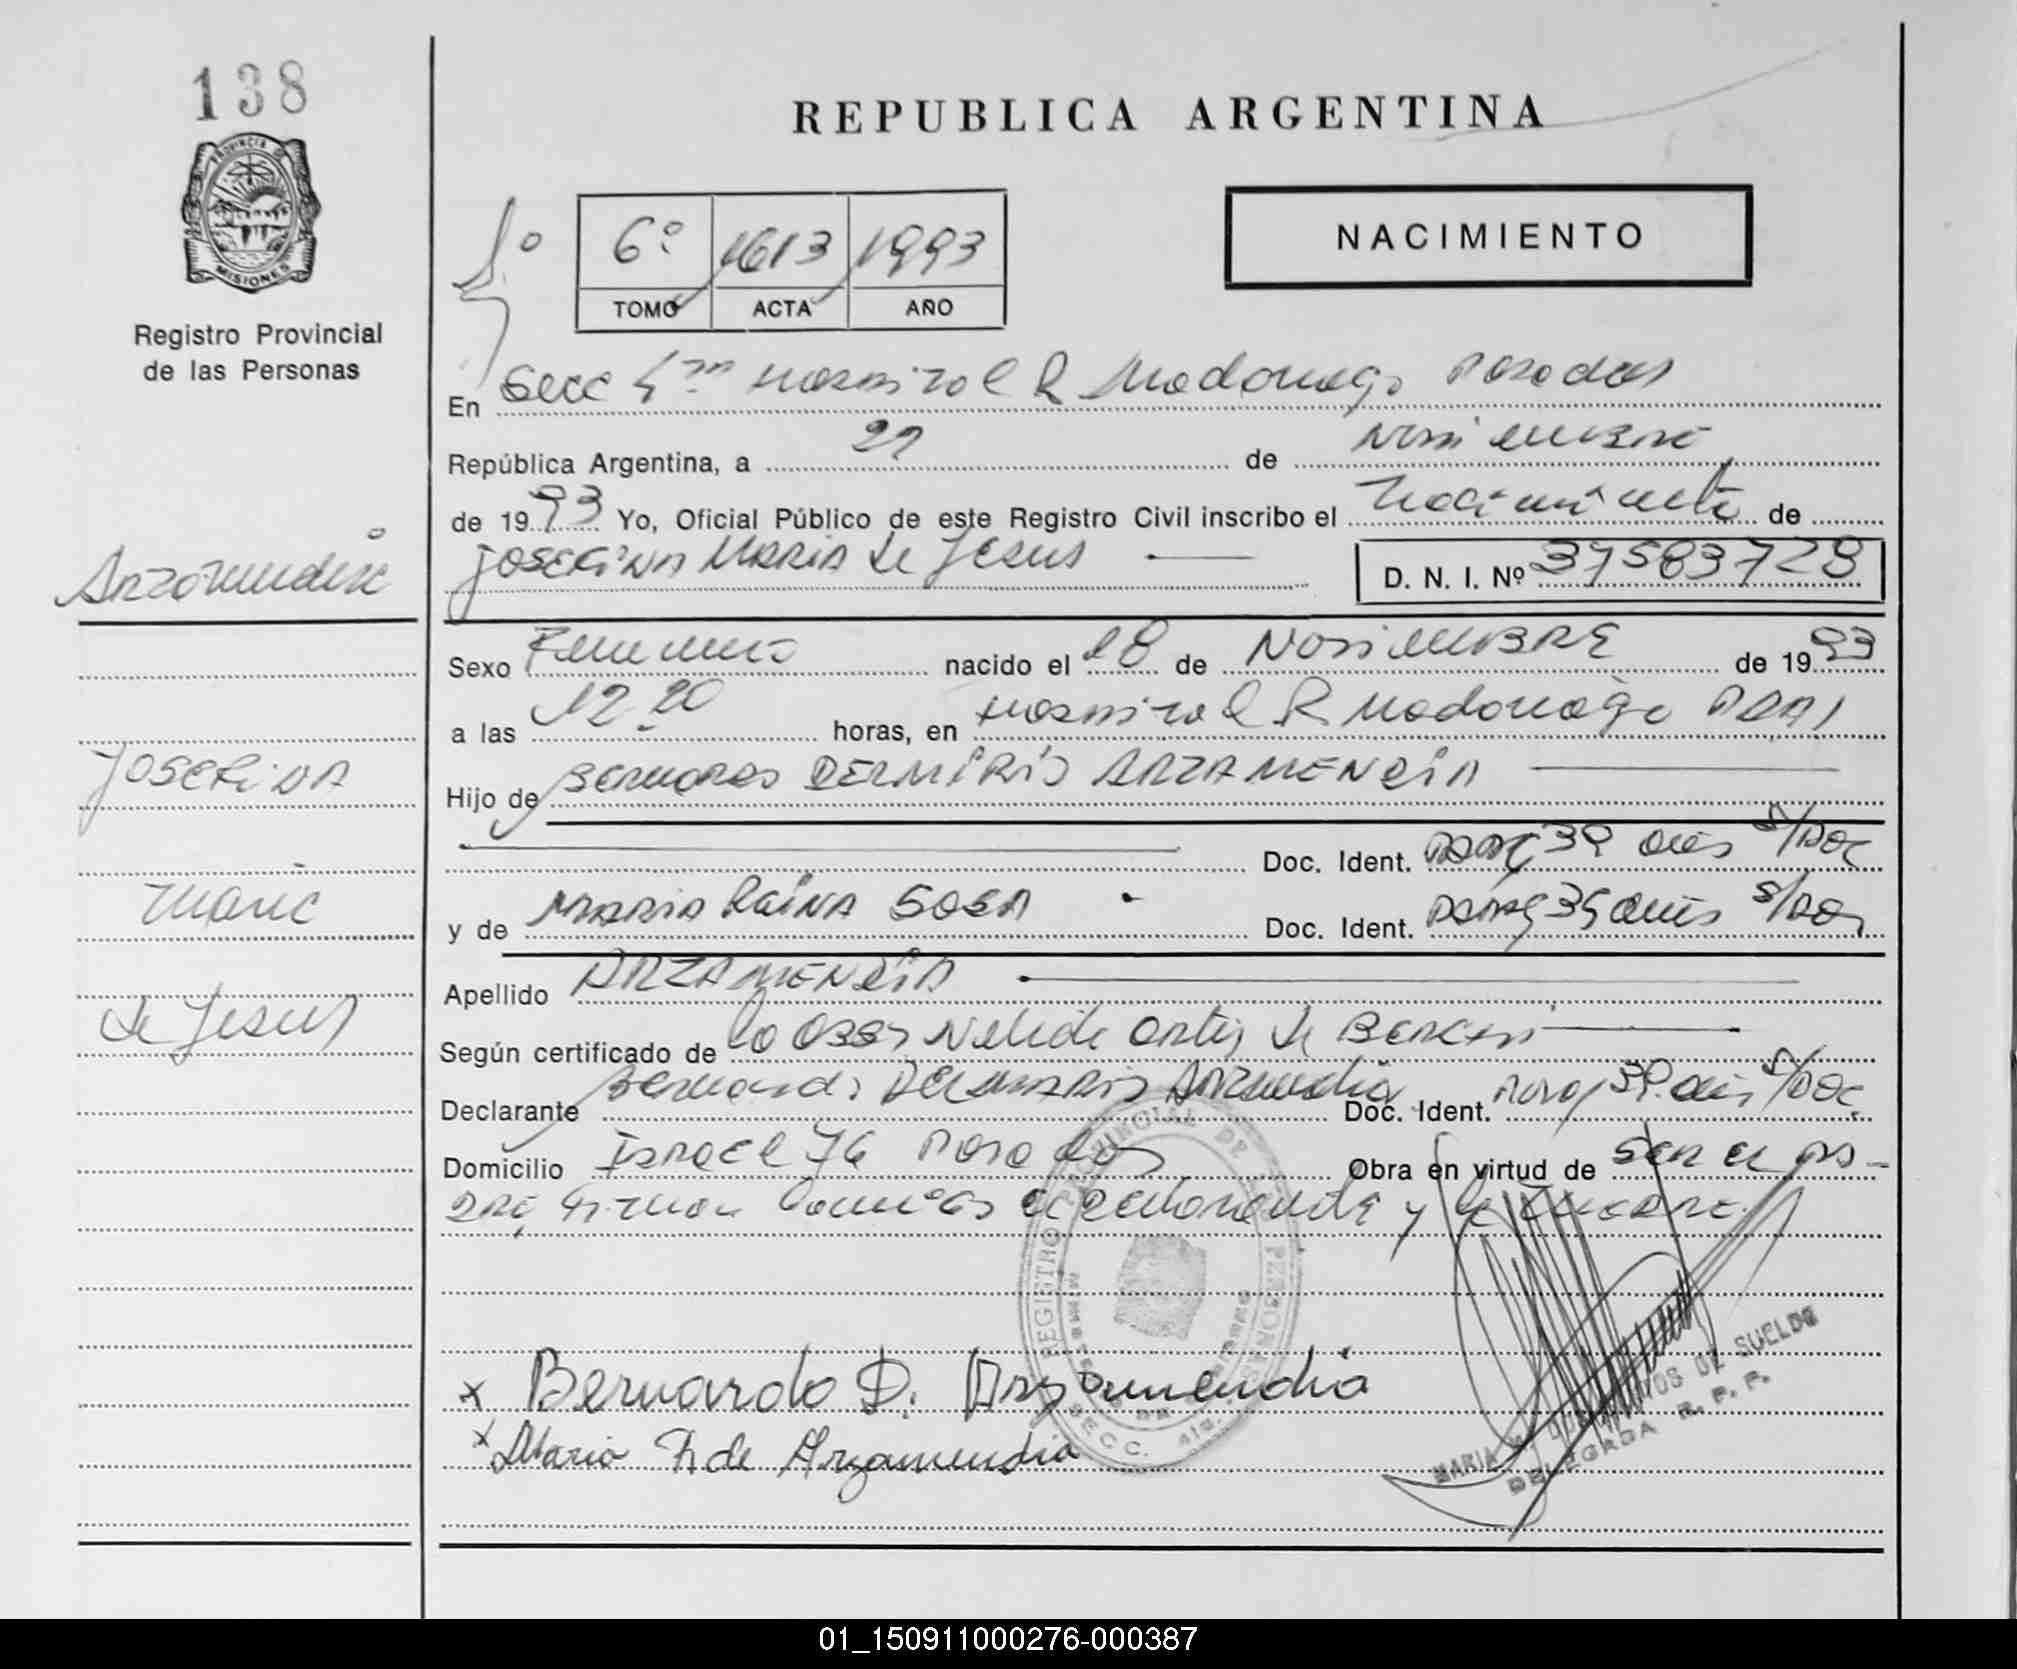 138
REPUBLICA ARGENTINA
PROVINCIA DE
MISIONES
Registro Provincial
de las Personas
6º 1613 1993
TOMO ACTA AÑO
NACIMIENTO
En Secc 4ta Hospital R Madariaga Posadas
República Argentina, a 22 de Noviembre
de 1993 Yo, Oficial Público de este Registro Civil inscribo el Nacimiento de
Josefina Maria de Jesus D. N. I. Nº 37583728
Arzamendia
Sexo Femenino nacido el 18 de NOVIEMBRE de 1993
a las 12.20 horas, en Hospital R Madariaga
Josefina
Hijo de Bernardo DERMIRIO ARZAMENDIA
Doc. Ident. 39 años s/Doc
Maria
y de MARIA Reina SOSA Doc. Ident. 35 años s/Doc
Apellido ARZAMENDIA
de Jesus
Según certificado de la Obst Nelida Ortiz de
Declarante Bernardo Arzamendia Doc. Ident. 39 años s/Doc.
Domicilio Israel 76 Posadas Obra en virtud de Ser el pa-
dre, Firman el declarante y la madre
REGISTRO PROVINCIAL DE LAS PERSONAS
SECC. 4ta.
x Bernardo D. Arzamendia
x Maria R de Arzamendia
MARIA DE SUELDO
DELEGADA R. P. P.
01_150911000276-000387